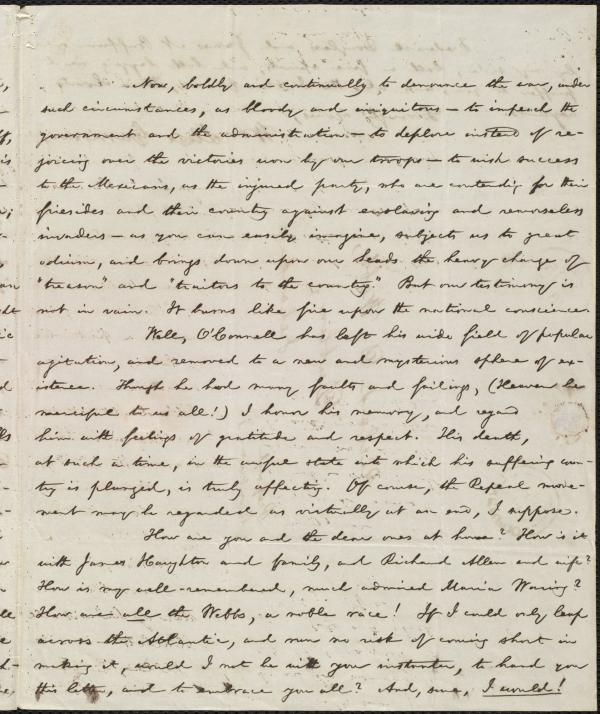 Now, boldly and continually to denounce the war, under
such circumstances, as bloody and iniquitous — to impeach the
government and the administration — to deplore instead of re-
joicing over the victories won by our troops — to wish success
to the Mexicans, as the injured party, who are contending for their
firesides and their country against enslaving and remorseless
invaders — as you can easily imagine, subjects us to great
odium, and brings down upon our heads the heavy charge of
"treason" and "traitors to the country." But our testimony is
not in vain. It burns like fire upon the national conscience.
Well, O'Connell has left his wide field of popular
agitation, and removed to a new and mysterious sphere of ex-
istence. Though he had many faults and failings, (Heaven be
merciful to us all!) I honor his memory, and regard
him with feelings of gratitude and respect. His death,
at such a time, in the awful state into which his suffering coun-
try is plunged, is truly affecting. Of course, the Repeal move-
ment may be regarded as virtually at an end, I suppose.
How are you and the dear ones at home? How is it
with James Haughton and family, and Richard Allen and wife?
How is my well-remembered, much admired Maria Waring?
How are all the Webbs, a noble race! If I could only leap
across the Atlantic, and run no risk of coming short in
making it, would I not be with you instanter, to hand you
this letter, and to embrace you all? And, sure, I would!